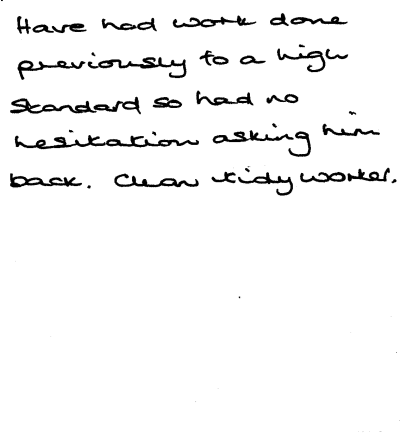 Have had work done
previously to a high
standard so had no
hesitation asking him
back. Clean tidy worker.